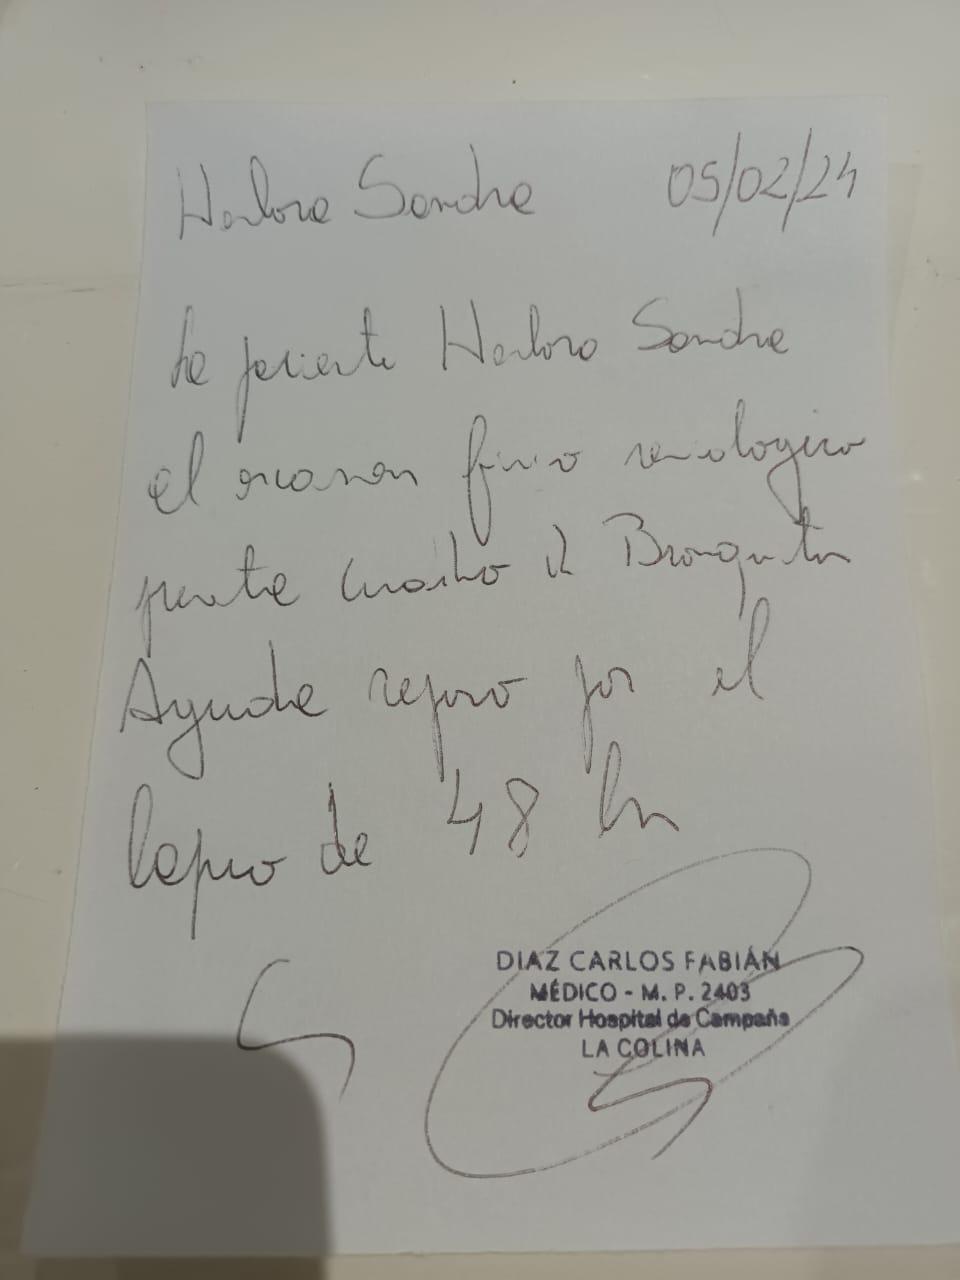 Sandra 05/02/24
La paciente Sandra
el examen fisico semiologico
presenta cuadro de Bronquitis
Aguda reposo por el
lapso de 48 hs
DIAZ CARLOS FABIÁN
MÉDICO - M. P. 2403
Director Hospital de Campaña
LA COLINA